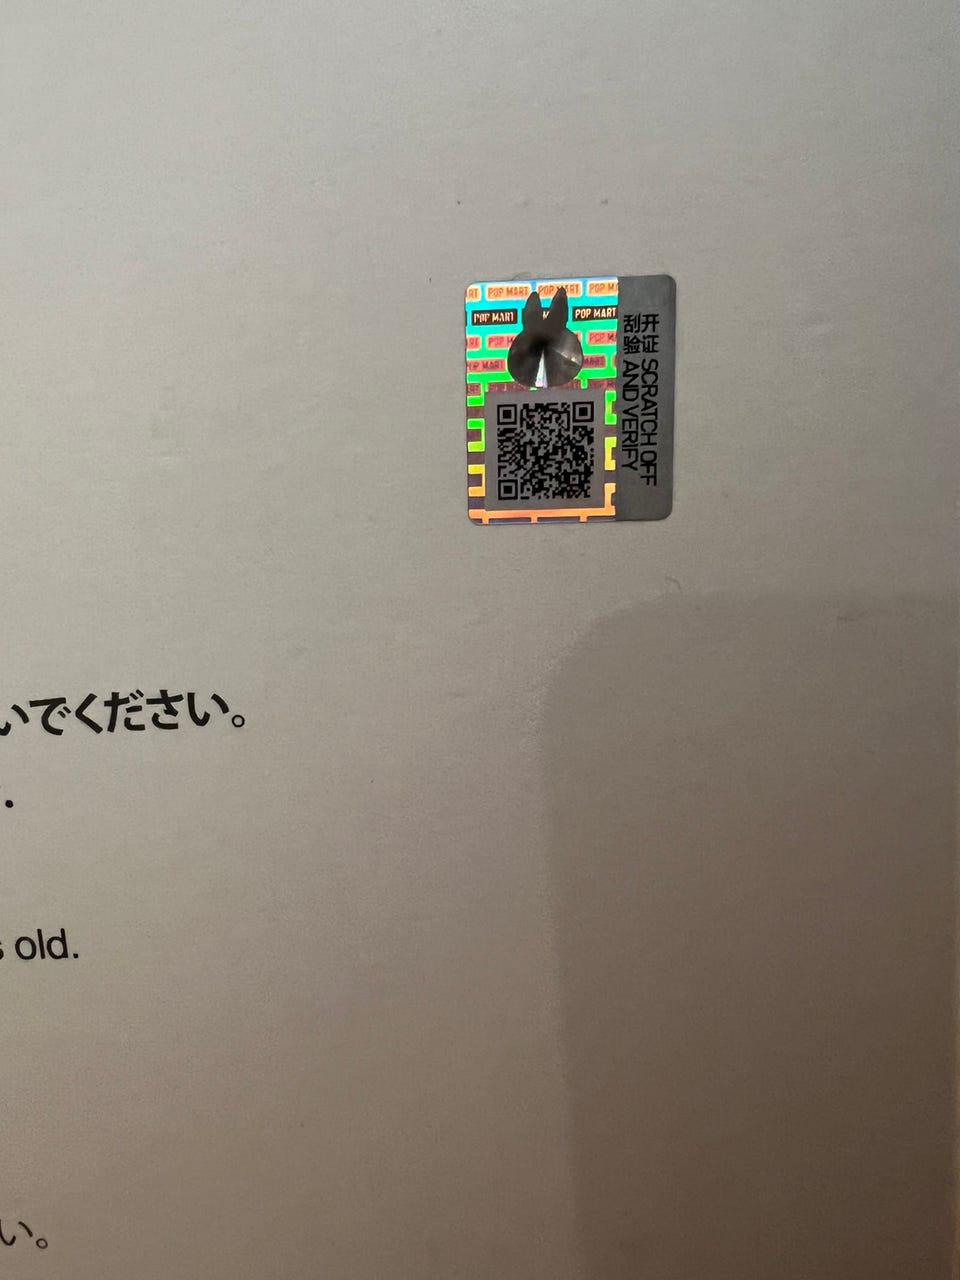 POP MART POP MART POP M
POP MART POP MART
POP M
刮开
验证
SCRATCH OFF
AND VERIFY
いでください。
.
s old.
い。